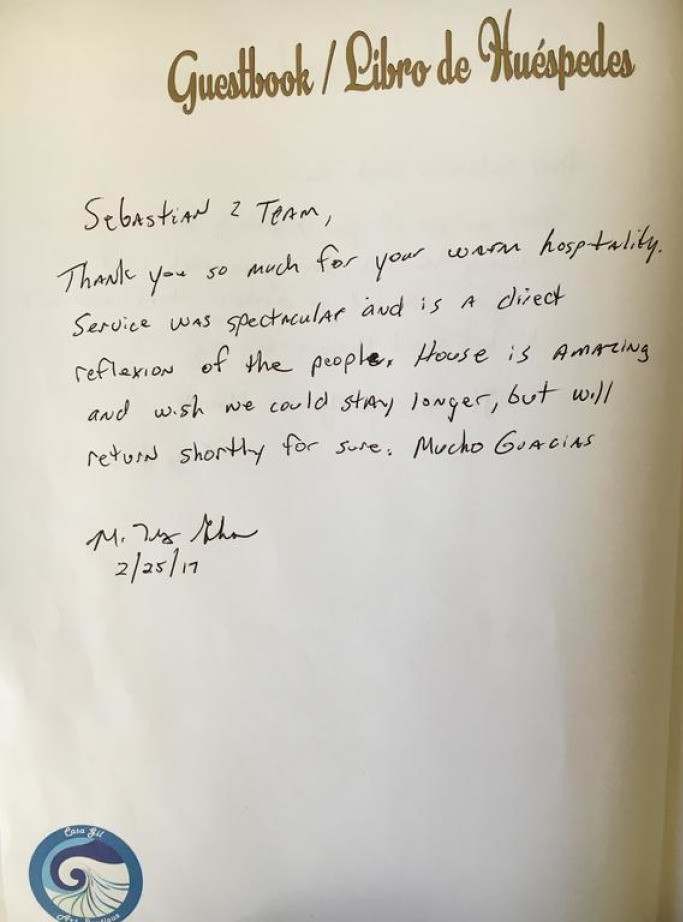 Guestbook / Libro de Huéspedes
Sebastian & Team,
Thank you so much for your warm hospitality.
Service was spectacular and is a direct
reflexion of the people. House is amazing
and wish we could stay longer, but will
return shortly for sure. Mucho Guacias
M.
2/25/17
Casa Gil